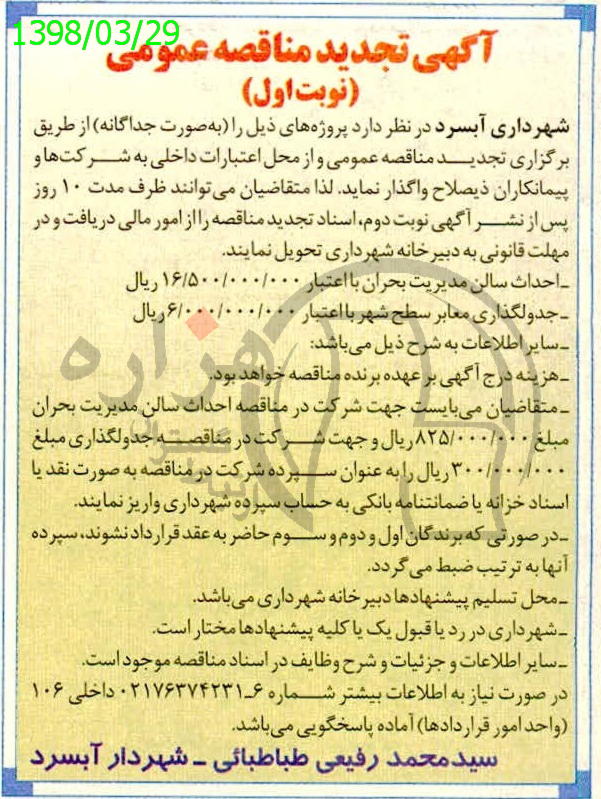 1398/03/29
آگهی تجدید مناقصه عمومی
(نوبت اول)
شهرداری آبسرد در نظر دارد پروژه‌های ذیل را (به‌صورت جداگانه) از طریق
برگزاری تجدید مناقصه عمومی و از محل اعتبارات داخلی به شرکت‌ها و
پیمانکاران ذیصلاح واگذار نماید. لذا متقاضیان می‌توانند ظرف مدت ۱۰ روز
پس از نشر آگهی نوبت دوم، اسناد تجدید مناقصه را از امور مالی دریافت و در
مهلت قانونی به دبیرخانه شهرداری تحویل نمایند.
ـ احداث سالن مدیریت بحران با اعتبار ۱۶/۵۰۰/۰۰۰/۰۰۰ ریال
ـ جدولگذاری معابر سطح شهر با اعتبار ۶/۰۰۰/۰۰۰/۰۰۰ ریال
ـ سایر اطلاعات به شرح ذیل می‌باشد:
ـ هزینه درج آگهی بر عهده برنده مناقصه خواهد بود.
ـ متقاضیان می‌بایست جهت شرکت در مناقصه احداث سالن مدیریت بحران
مبلغ ۸۲۵/۰۰۰/۰۰۰ ریال و جهت شرکت در مناقصه جدولگذاری مبلغ
۳۰۰/۰۰۰/۰۰۰ ریال را به عنوان سپرده شرکت در مناقصه به صورت نقد یا
اسناد خزانه یا ضمانتنامه بانکی به حساب سپرده شهرداری واریز نمایند.
ـ در صورتی که برندگان اول و دوم و سوم حاضر به عقد قرارداد نشوند، سپرده
آنها به ترتیب ضبط می‌گردد.
ـ محل تسلیم پیشنهادها دبیرخانه شهرداری می‌باشد.
ـ شهرداری در رد یا قبول یک یا کلیه پیشنهادها مختار است.
ـ سایر اطلاعات و جزئیات و شرح وظایف در اسناد مناقصه موجود است.
در صورت نیاز به اطلاعات بیشتر شماره ۶ـ۰۲۱۷۶۳۷۴۲۳۱ داخلی ۱۰۶
(واحد امور قراردادها) آماده پاسخگویی می‌باشد.
سیدمحمد رفیعی طباطبائی ـ شهردار آبسرد
هزاره